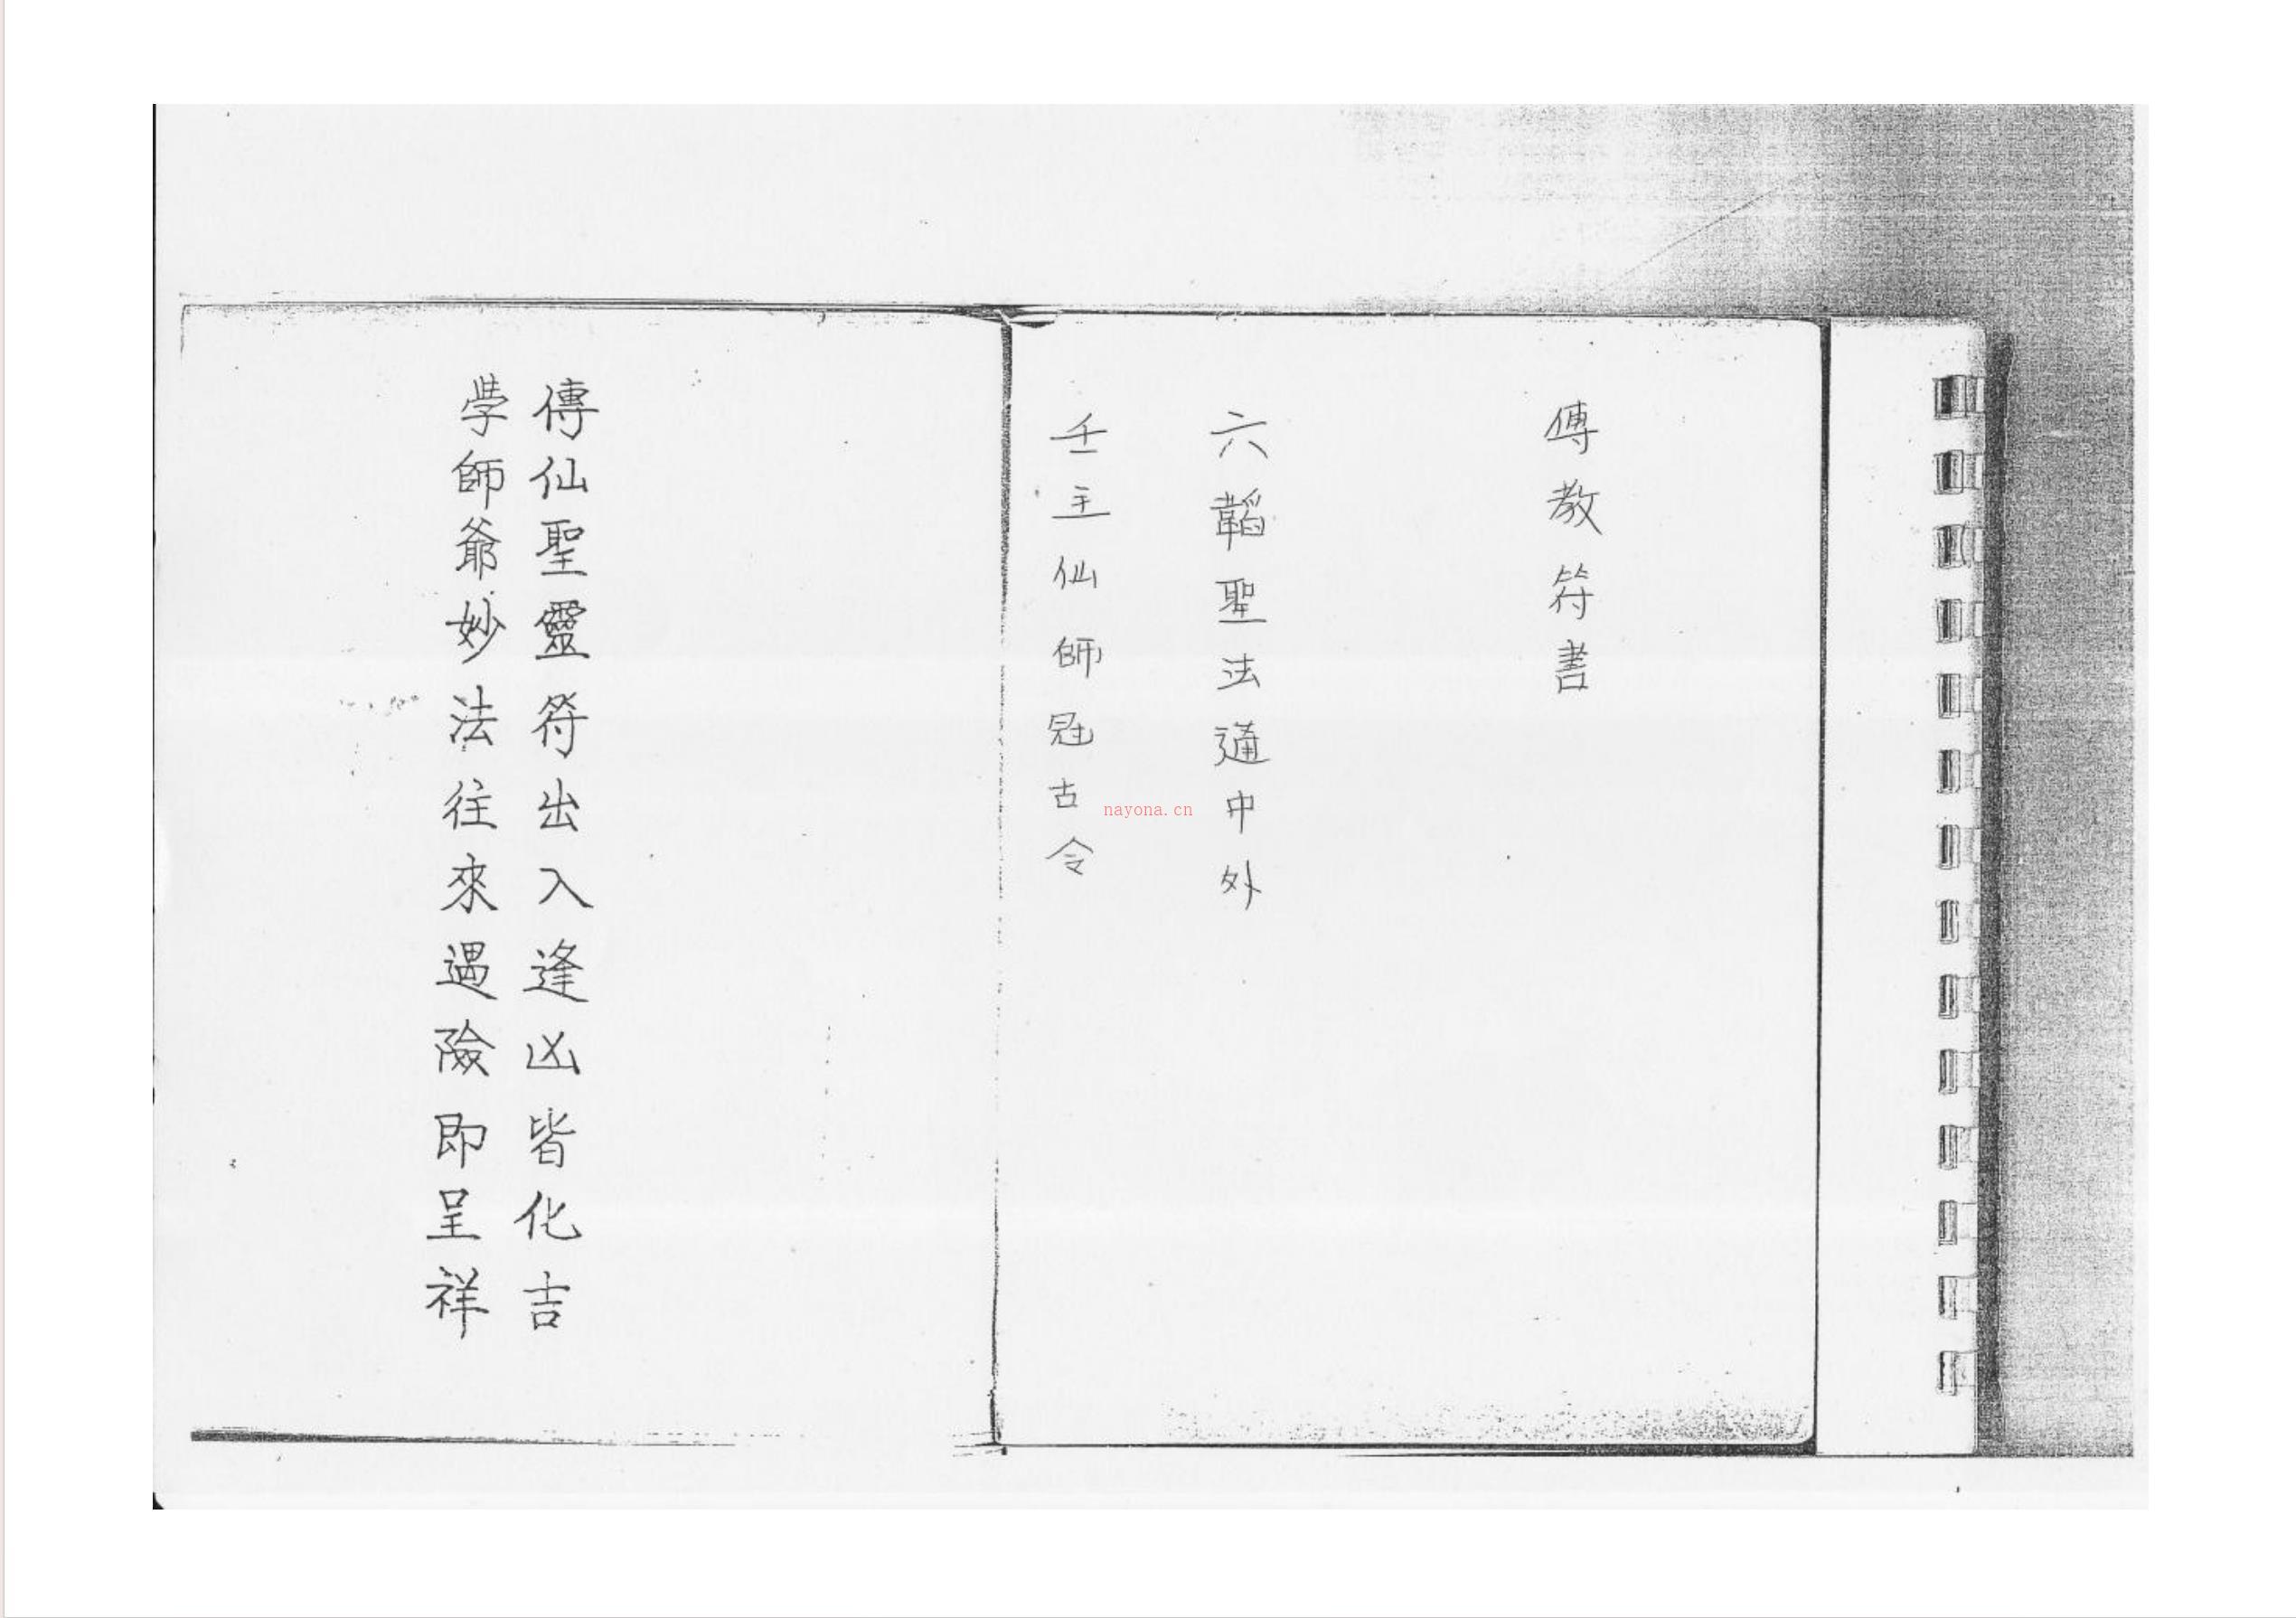 傳教符書
六韜聖法通中外
壬主仙師冠古今
傳仙聖靈符出入逢凶皆化吉
學師爺妙法往來遇險即呈祥
nayona.cn